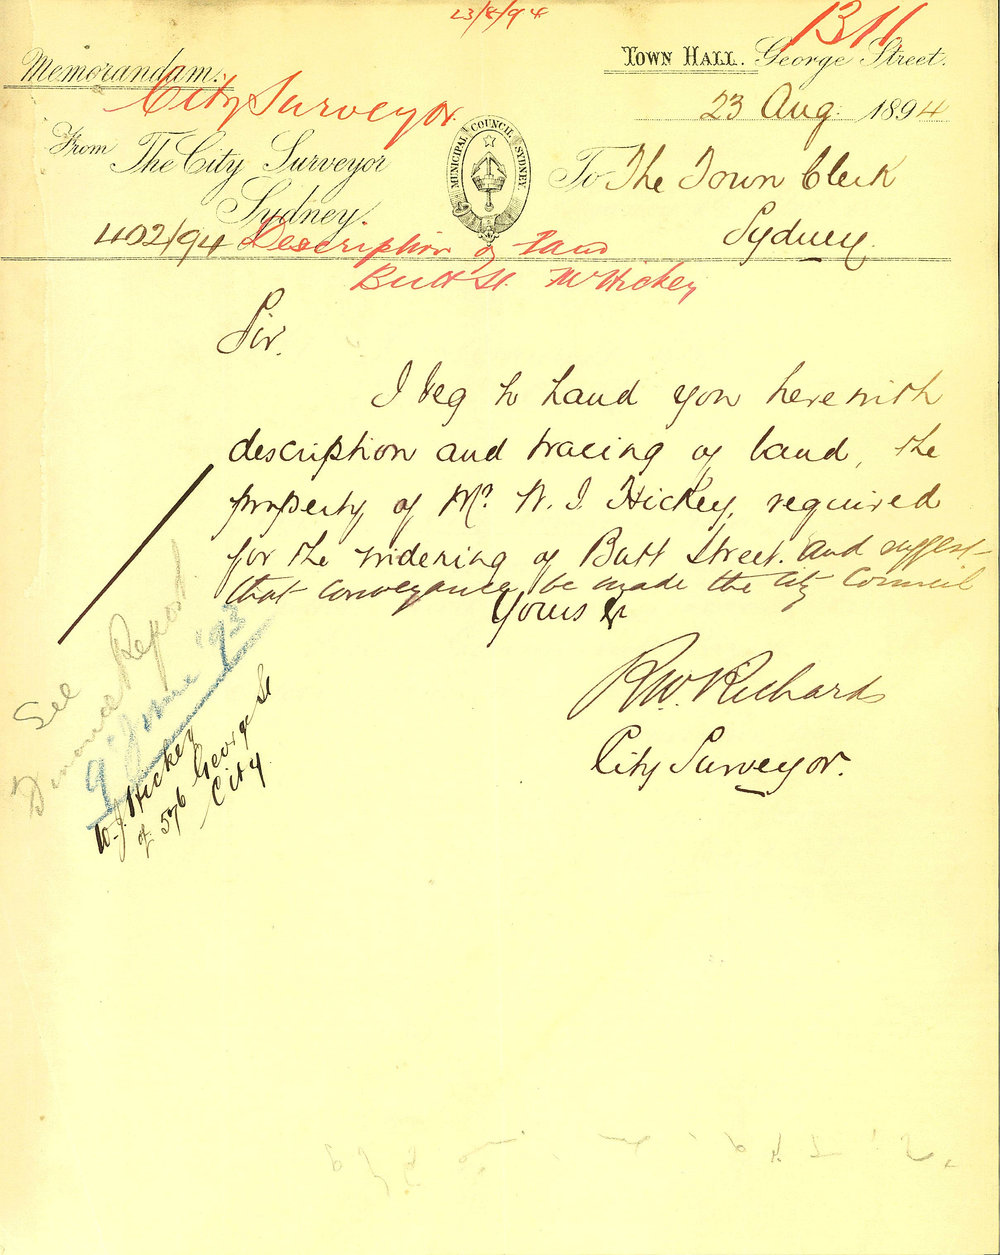 23/8/94
1311
Memorandum.
Town Hall. George Street.
City Surveyor
23 Aug. 1894
From The City Surveyor
Sydney.
MUNICIPAL COUNCIL SYDNEY.
To The Town Clerk
Sydney.
402/94 Description of Land
Butt St. Mr Hickey
Sir.
I beg to hand you herewith
description and tracing of land, the
property of Mr. W. J. Hickey, required
for the widening of Butt Street. and suggest
that conveyance be made the City Council
Yours &
R.W. Richards
City Surveyor.
See
Report
9 June '93
W.J. Hickey
of 576 George St
City